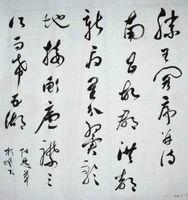 滕王阁序
南昌故郡洪都
新府星分翼轸
地接衡庐襟三
江而带五湖